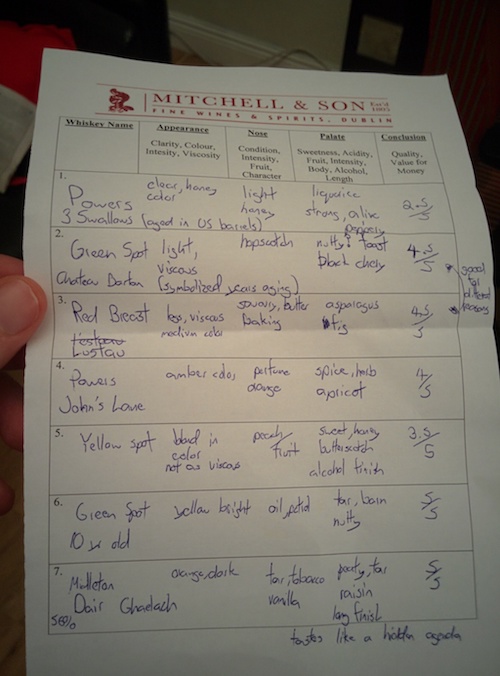 MITCHELL & SON Est'd 1805
FINE WINES & SPIRITS, DUBLIN
Whiskey Name
Appearance
Clarity, Colour,
Intesity, Viscosity
Note
Condition,
Intensity,
Fruit,
Character
Palate
Sweetness, Acidity,
Fruit, Intensity,
Body, Alcohol,
Length
Conclusion
Quality,
Value for
Money
1.
Powers
3 Swallows (aged in US barrels)
clear, honey
color
light
honey
liquorice
strong, olive
peppery
2.5/5
2.
Green Spot
Chateau Barton
light,
viscous
(symbolized years aging)
hopscotch
nutty, toast
black cherry
4.5/5
good
for
different
reasons
3.
Red Breast
Lustau
less, viscous
medium color
savoury, butter
baking
asparagus
fig
4.5/5
4.
Powers
John's Lane
amber color
perfume
orange
spice, herb
apricot
4/5
5.
Yellow spot
blond in
color
not as viscous
peach/
fruit
sweet, honey
butterscotch
alcohol finish
3.5/5
6.
Green Spot
10 yr old
yellow bright
oil, petrol
tar, barn
nutty
5/5
7.
Midleton
Dair Ghaelach
56%
orange, dark
tar, tobacco
vanilla
peaty, tar
raisin
long finish
5/5
tastes like a hidden agenda